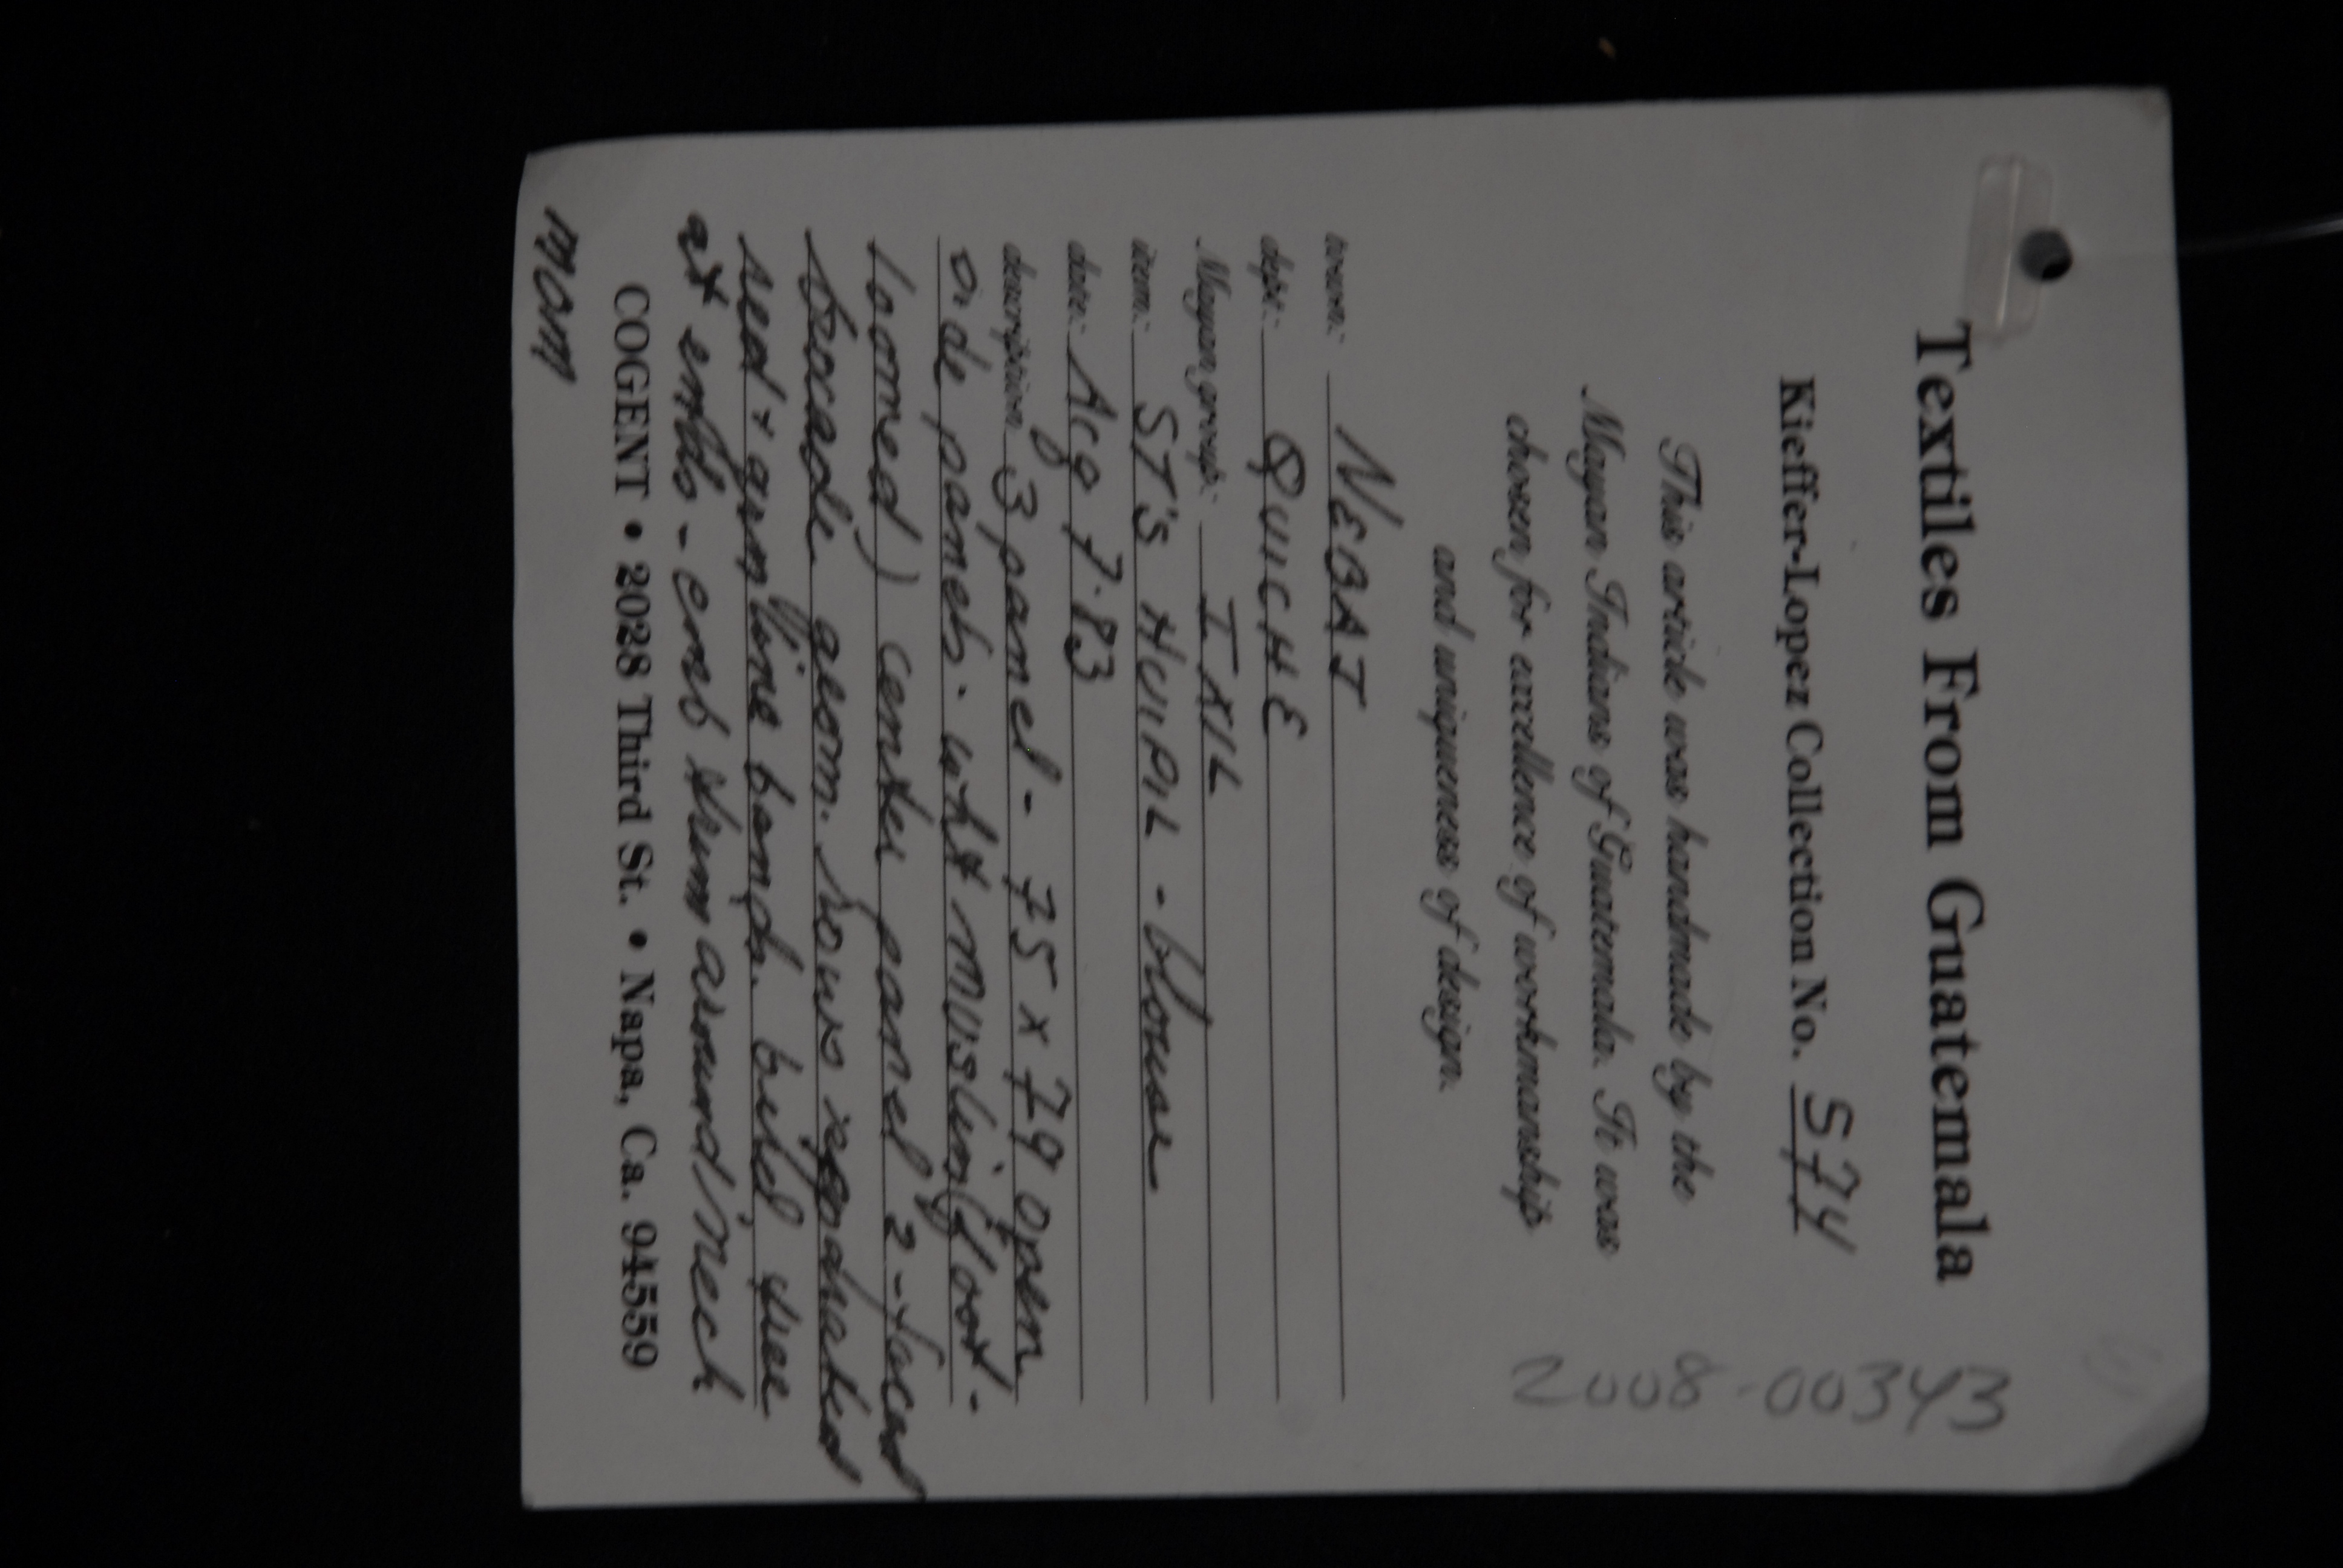 Textiles From Guatemala
Kieffer-Lopez Collection No. 574
2008-00343
This article was handmade by the
Mayan Indians of Guatemala. It was
chosen for excellence of workmanship
and uniqueness of design.
town: NEBAJ
dept: QUICHE
Mayan group: IXIL
item: ST'S HUIPIL - blouse
date: Acq 7.83
description 3 panel - 75 x 79 open
side panels. wht muslin (foot-
loomed) center panel 2-faced
brocade geom. rows
red + grn line bands. tree
at ends - emb around neck
COGENT • 2028 Third St. • Napa, Ca. 94559
mom